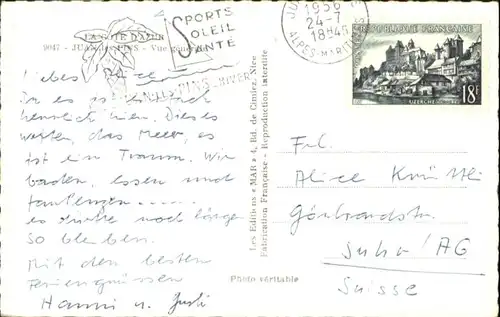 LA CÔTE D'AZUR
9047 - JUAN-les-PINS - Vue générale
SPORTS
SOLEIL
SANTÉ
1956
24-7
18H45
ALPES-MARIT
RÉPUBLIQUE FRANÇAISE
UZERCHE
18F
Les Editions « MAR » 4, Bd. de Cimiez, Nice
Fabrication Française - Reproduction interdite
Photo véritable
Liebes
Da es ist
herrlich hier. Dieses
das Meer, es
ist ein Traum. Wir
baden, essen und
faulenzen.....
es dürfte noch lange
so bleiben.
Mit den besten
Feriengrüssen
Hanni u.
Frl.
Alice
Suhr/AG
Suisse